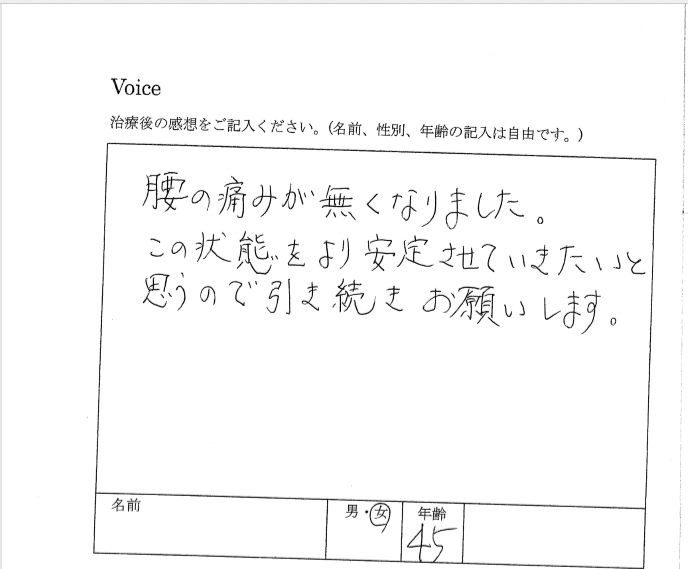 Voice
治療後の感想をご記入ください。(名前、性別、年齢の記入は自由です。)
腰の痛みが無くなりました。
この状態をより安定させていきたいと
思うので引き続きお願いします。
名前 男・女 年齢
45